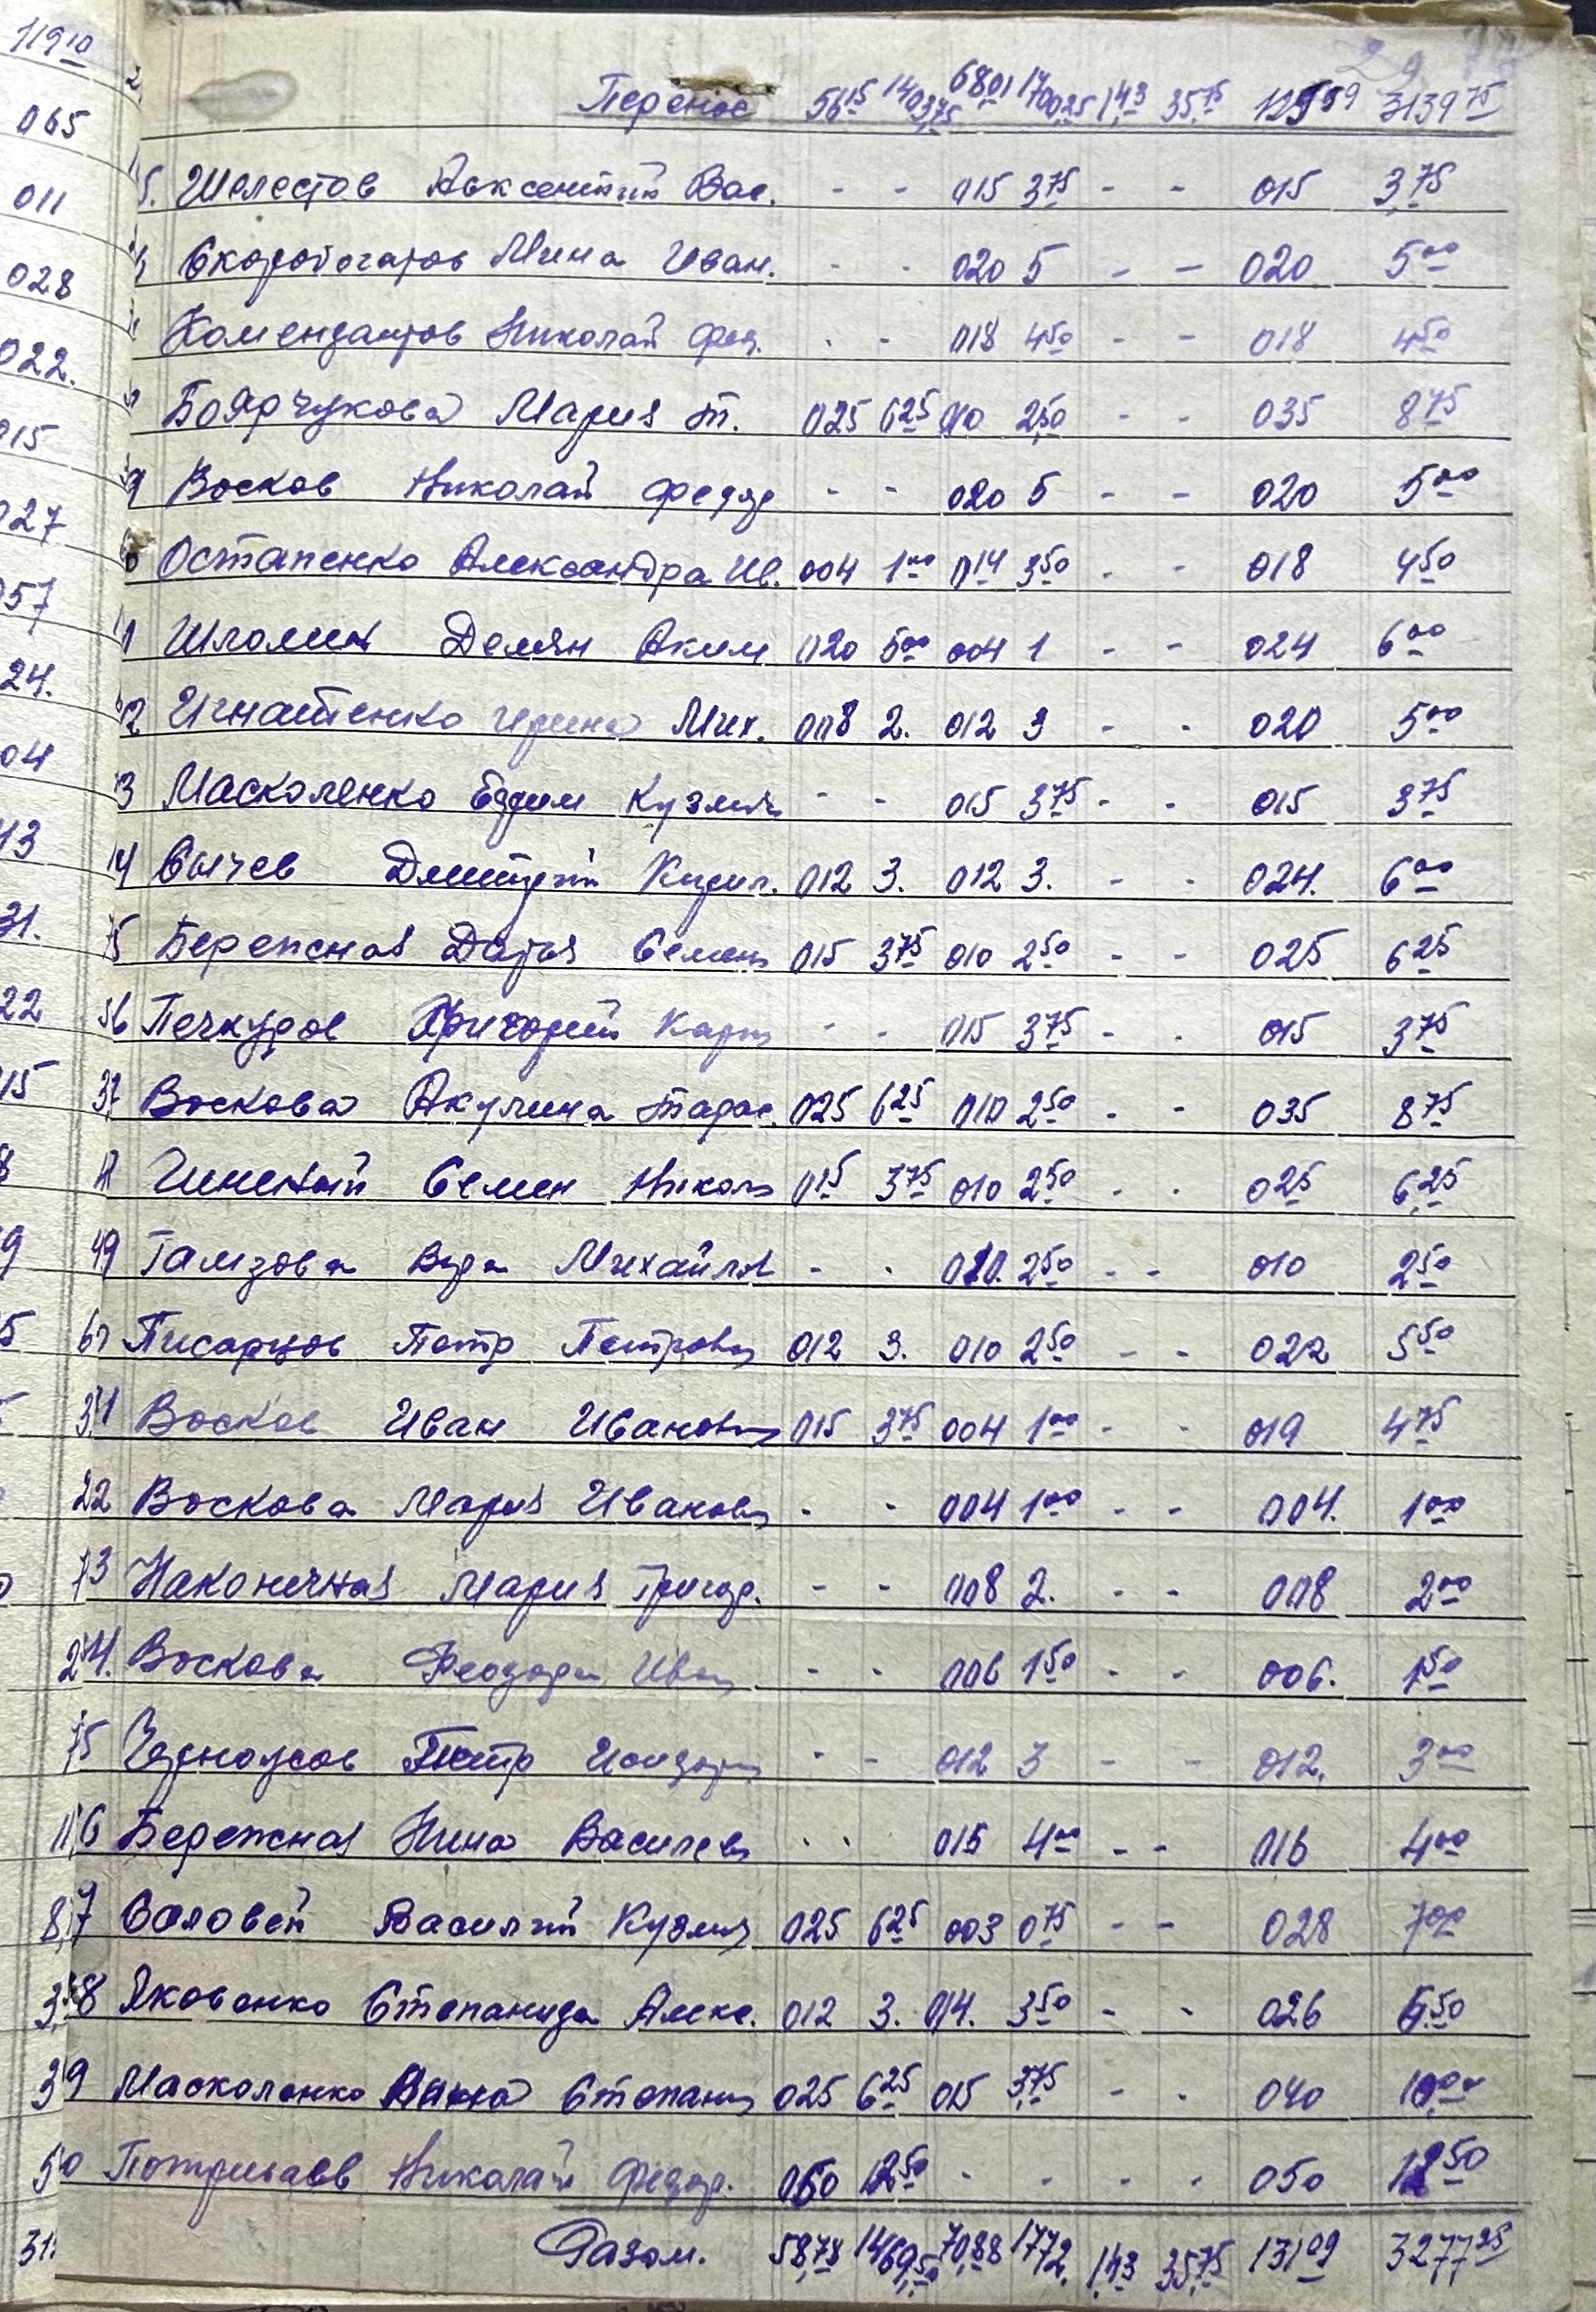 Перенос 56 15 1403,75 6801 1700,25 1,43 35,75 125 59 3139 75
5. Шелестов Авксентий Вас. - - 015 3 75 - - 015 3,75
Скоробогатов Мина Иван. - - 020 5 - - 020 5 00
Комендантов Николай Фед. - - 018 4 50 - - 018 4 50
Боярчукова Мария Т. 025 6 25 010 2,50 - - 035 8 75
9 Восков Николай Федор - - 020 5 - - 020 5 00
0 Остапенко Александра Ив. 004 1 00 014 3 50 - - 018 4 50
1 Шломин Демян Аким 020 5 00 004 1 - - 024 6 00
2 Игнатенко Ирина Мих. 008 2. 012 3 - - 020 5 00
3 Масколенко Ефим Кузмич - - 015 3 75 - - 015 3 75
4 Сычев Дмитрий Кирил. 012 3. 012 3. - - 024. 6 00
5 Бережная Дарья Семен 015 3 75 010 2 50 - - 025 6 25
6 Печкуров Григорий Карп - - 015 3 75 - - 015 3 75
7 Воскова Акулина Тарас. 025 6 25 010 2 50 - - 035 8 75
8 Чинский Семен Никол 015 3 75 010 2 50 - - 025 6,25
9 Гамзова Вера Михайлов - - 010. 2 50 - - 010 2 50
Писарцов Петр Петрович 012 3. 010 2 50 - - 022 5 50
1 Восков Иван Иванович 015 3 75 004 1 00 - - 019 4 75
2 Воскова Мария Иванов - - 004 1 00 - - 004. 1 00
3 Наконечная Мария Григор. - - 008 2. - - 008 2 00
4. Воскова Феодора Иван - - 006 1 50 - - 006. 1 50
5 Черноусов Петр Исидор - - 012 3 - - 012. 3 00
6 Бережная Нина Василев - - 016 4 00 - - 016 4 00
7 Соловей Василий Кузмич 025 6 25 003 0 75 - - 028 7 00
8 Яковенко Степанида Алекс. 012 3. 014. 3 50 - - 026 6.50
9 Масколенко Анна Степан 025 6 25 015 3,75 - - 040 10,00
0 Николай Федор. 050 12 50 - - - - 050 12 50
Разом. 58,78 1469,50 70,88 1772, 1,43 35,75 131 09 3277 25
119 10
065
011
028
022.
015
027
057
24.
04
13
31.
22
15